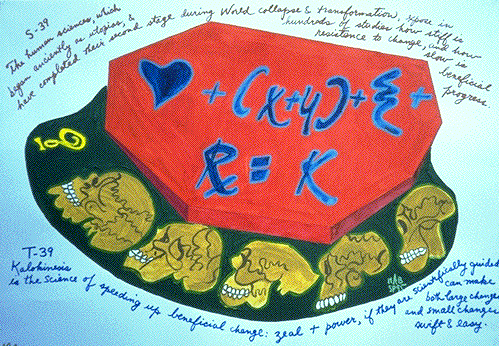 S-39
The human sciences, which
began anciently as utopias, &
have completed their second stage during World collapse & transformation, in
hundreds of studies how stiff is
resistance to change, and how
slow is beneficial
progress.
♥ + (x+y) + ξ +
R = K
T-39
Kalokinesis
is the science of speeding up beneficial change: zeal + power, if they are scientifically guided
can make
both large changes
and small changes
swift & easy.